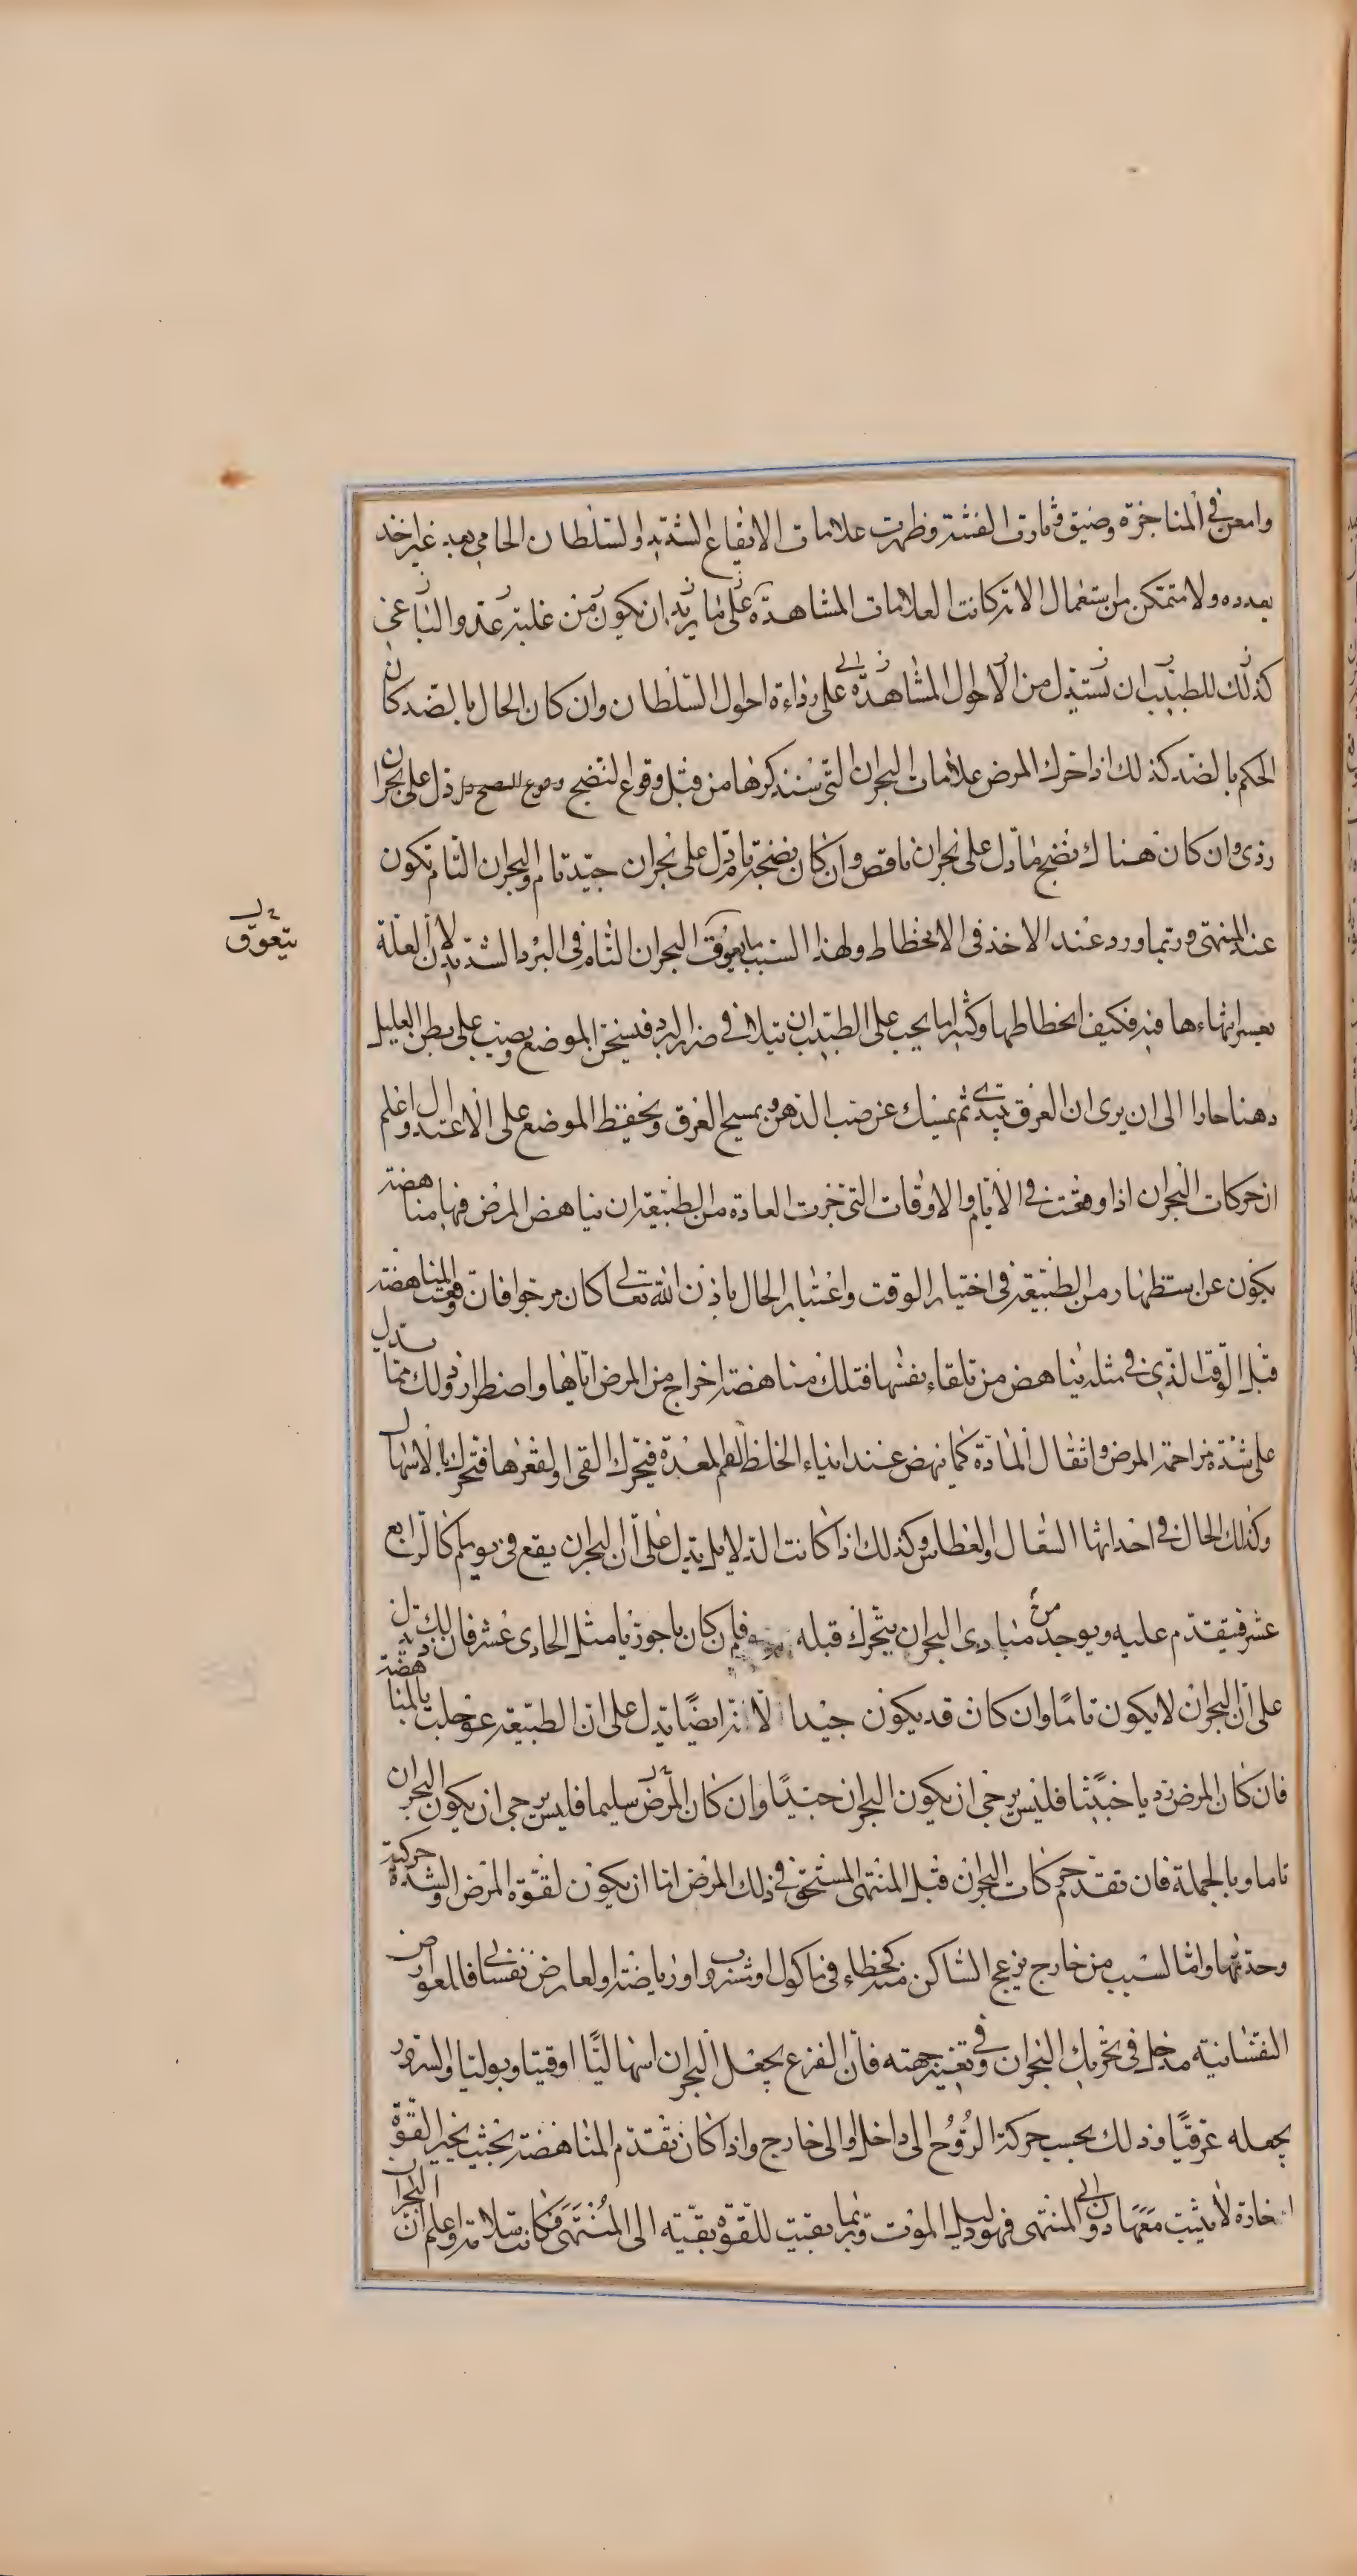 وامعن في المناجزة وضيق وثارت الفتنة وظهرت علامات الايقاع الشديد والسلطان الحامي بعد غير اخذ
بعدده ولا متمكن من استعمال الاته كانت العلامات المشاهدة على ما يريد ان يكون من غلبة عدو الباغي
كذلك للطبيب ان يستدل من الاحوال المشاهدة على رداءة احوال السلطان وان كان الحال بالضد كان
الحكم بالضد كذلك اذا حرك المرض علامات البحران التي سنذكرها من قبل وقوع النضج وقوع النضج دل على بحران
ردى وان كان هناك نضج ما دل على بحران ناقص وان كان نضج تام دل على بحران جيد تام والبحران التام يكون
عند المنتهى وربما ورد عند الاخذ في الانحطاط ولهذا السبب ما يعوق البحران التام في البرد الشديد لان العلة
يتعوق
يعسر انتهاءها فيه فكيف انحطاطها وكثيرا ما يجب على الطبيب ان يتلافى ضرار البرد فيسخن الموضع ويصب على بطن العليل
دهنا حارا الى ان يرى ان العرق يبتدى ثم يمسك عن صب الدهن ويمسح العرق ويحفظ الموضع على الاعتدال واعلم
ان حركات البحران اذا وقعت في الايام والاوقات التي جرت العادة من الطبيعة ان يناهض المرض فيها مناهضة
يكون عن استظهار من الطبيعة في اختيار الوقت واعتبار الحال باذن الله تعالى كان مرجوا فان وقعت المناهضة
قبل الوقت الذي في مثله يناهض من تلقاء نفسها فتلك مناهضة اخراج من المرض اياها واضطرار وذلك مما يدل
على شدة مزاحمة المرض واثقال المادة كما ينهض عند ايذاء الخلط لفم المعدة فيحرك القي او لقعرها فيحرك بالاسهال
وكذلك الحال في احداثها السعال والعطاس وكذلك اذا كانت الدلايل يدل على ان البحران يقع في يوم كالرابع
عشر فيتقدم عليه ويوجد من مبادى البحران يتحرك قبله فان كان باحوريا مثل الحادى عشر فان ذلك يدل
على ان البحران لا يكون تاما وان كان قد يكون جيدا لانه ايضا يدل على ان الطبيعة عوجلت بالمناهضة
فان كان المرض رديا خبيثا فليس يرجى ان يكون البحران جيدا وان كان المرض سليما فليس يرجى ان يكون البحران
تاما وبالجملة فان تقدم حركات البحران قبل المنتهى المستحق في ذلك المرض اما ان يكون لقوة المرض والشدة حركته
وحدتها واما لسبب من خارج يزعج الساكن منه كخطاء في ماكول او مشروب او رياضة او لعارض نفساني فللعوارض
النفسانية مدخل في تحريك البحران وفي تغيير جهته فان الفزع يجعل البحران اسهاليا او قييا او بوليا والسرور
يجعله عرقيا وذلك بحسب حركة الروح الى داخل والى خارج واذا كان تقدم المناهضة بحيث يخير القوة
اخادة لا يثبت معها دون المنتهى فهو دليل الموت وربما بقيت للقوة بقية الى المنتهى فكانت سلامة واعلم ان البحران